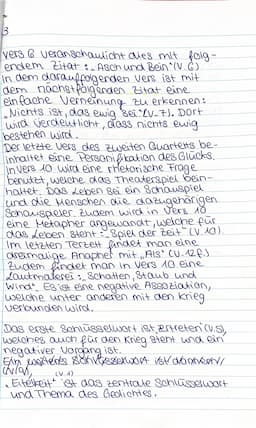 3
Vers 6 veranschaulicht dies mit folg-
endem Zitat: „Asch und Bein" (V. 6)
In dem darauffolgenden Vers ist mit
dem nächstfolgenden Zitat eine
einfache Verneinung zu erkennen:
„Nichts ist, das ewig sei" (V. 7). Dort
wird verdeutlicht, dass nichts ewig
bestehen wird.
Der letzte Vers des zweiten Quartetts be-
inhaltet eine Personifikation des Glücks.
In Vers 10 wird eine rhetorische Frage
benutzt, welche das Theaterspiel bein-
haltet. Das Leben sei ein Schauspiel
und die Menschen die dazugehörigen
Schauspieler. Zudem wird in Vers 10
eine Metapher angewandt, welche für
das Leben steht: „Spiel der Zeit" (V. 10).
Im letzten Terzett findet man eine
dreimalige Anapher mit „Als" (V. 12 f.)
Zudem findet man in Vers 10 eine
Lautmalerei: „Schatten, Staub und
Wind". Es ist eine negative Assoziation,
welche unter anderem mit den Krieg
verbunden wird.
Das erste Schlüsselwort ist „zertreten" (V. 5),
welches auch für den Krieg steht und ein
negativer Vorgang ist.
Ein weiteres Schlüsselwort ist
(V. 1)
„Eitelkeit" ist das zentrale Schlüsselwort
und Thema des Gedichtes.